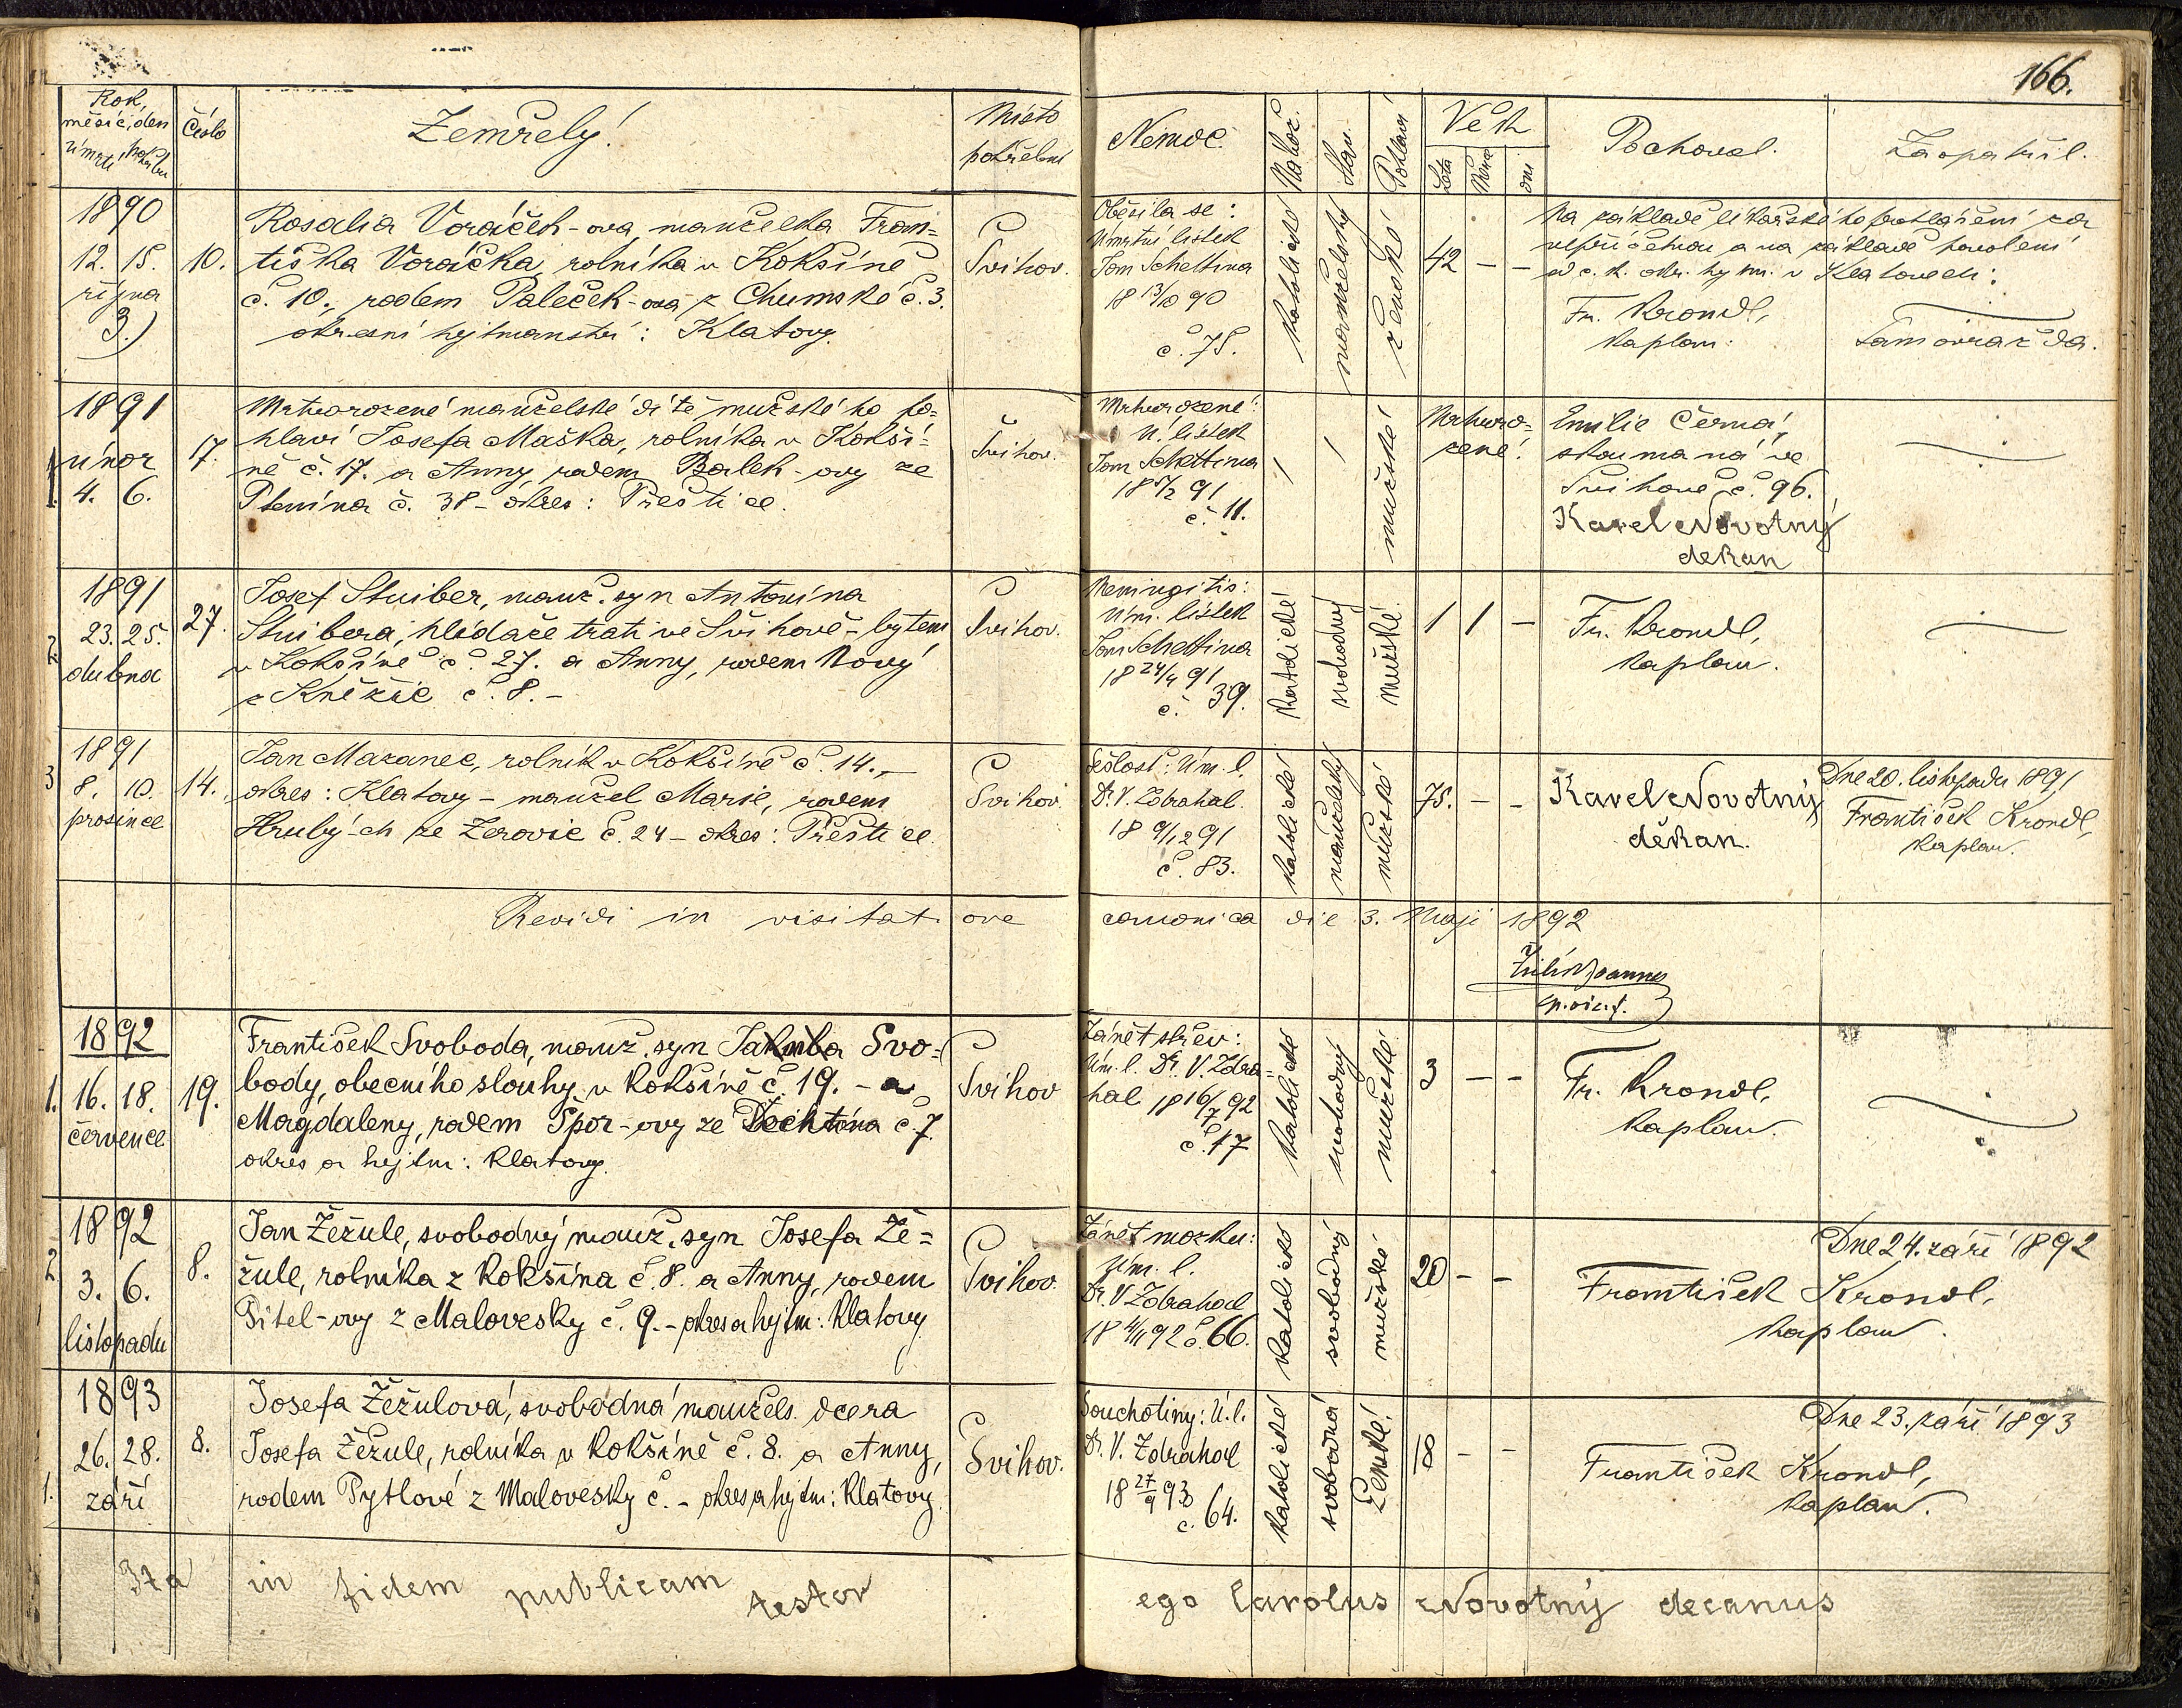 166.
Rok,
měsíc, den
úmrtí pohřbu
Číslo
Zemřelý!
Místo
pohřební
Nemoc.
Nábož.
Stav.
Pohlaví
Věk
Léta
Měsíce
dni
Pochoval.
Zaopatřil.
1890
12. 15.
října
3.)
10.
Rosalia Voráček-ova, manželka Fran=
tiška Voráčka, rolníka v Kokšíně
č. 10., rodem Paleček-ova z Chumské č. 3.
okresní hejtmanství: Klatovy.
Švihov.
Oběsila se:
Úmrtní lístek
Jan Schettina
18 13/10 90
č. 75.
katolické
manželský
ženské
42 - -
Na základě lékařského prohlášení za
nepříčetnou a na základě povolení
od c. k. okr. hejtm. v Klatovech:
Fr. Krondl,
kaplan.
Samovražda.
1.
1891
únor
4. 6.
17.
Mrtvorozené manželské dítě mužského po=
hlaví Josefa Maška, rolníka v Kokší=
ně č. 17. a Anny, rodem Balek-ovy ze
Ptenína č. 38 - okres: Přeštice.
Švihov.
Mrtvorozené:
Ú. lístek
Jan Schettina
18 5/2 91
č. 11.
mužské
Mrtvoro=
zené!
Emilie Černá,
zkoumaná ve
Švihově č. 96.
Karel Novotný
děkan
2.
1891
23. 25.
dubna
27.
Josef Stuiber, manž. syn Antonína
Stuibera, hlídače trati ve Švihově - bytem
v Kokšíně č. 27. a Anny, rodem Nový
z Kněžic č. 8. -
Švihov.
Meningitis:
Úm. lístek
Jan Schettina
18 24/4 91
č. 39.
katolické
svobodný
mužské.
1 1 -
Fr. Krondl,
kaplan.
3
1891
8. 10.
prosince
14.
Jan Mazanec, rolník v Kokšíně č. 14. -
okres: Klatovy - manžel Marie, rodem
Hrubý-ch ze Žerovic č. 24 - okres: Přeštice.
Švihov.
Sešlost: Úm. l.
Dr. V. Zdrahal.
18 9/12 91
č. 83.
katolické
manželský
mužské
75. - -
Karel Novotný
děkan.
Dne 20. listopadu 1891
František Krondl,
kaplan.
Revidi in visitat. ove canonica die 3. Maji 1892
1.
1892
16. 18.
července
19.
František Svoboda, manž. syn Jakuba Svo=
body, obecního slouhy v Kokšíně č. 19. - a
Magdaleny, rodem Špor-ovy ze Dechtína č. 7.
okres a hejtm: Klatovy.
Švihov
Zánět střev:
Úm. l. Dr. V. Zdra=
hal 18 16/7 92
č. 17
katolické
svobodný
mužské
3 - -
Fr. Krondl,
kaplan.
2.
1892
3. 6.
listopadu
8.
Jan Žežule, svobodný manž. syn Josefa Že=
žule, rolníka z Kokšína č. 8. a Anny, rodem
Pitel-ovy z Malovesky č. 9. - okres a hejtm: Klatovy
Švihov.
Zánět mozku:
Úm. l.
Dr. V Zdrahal
18 4/11 92 č. 66.
katolické
svobodný
mužské
20 - -
Dne 24. září 1892
František Krondl,
kaplan.
1.
1893
26. 28.
září
8.
Josefa Žežulová, svobodná manžels. dcera
Josefa Žežule, rolníka v Kokšíně č. 8. a Anny,
rodem Pytlové z Malovesky č. - okres a hejtm: Klatovy.
Švihov.
Souchotiny: Ú. l.
Dr. V. Zdrahal
18 27/9 93
č. 64.
katolické
svobodná
ženské!
18 - -
Dne 23. září 1893
František Krondl,
kaplan.
Ita in fidem publicam testor ego Carolus Novotný decanus